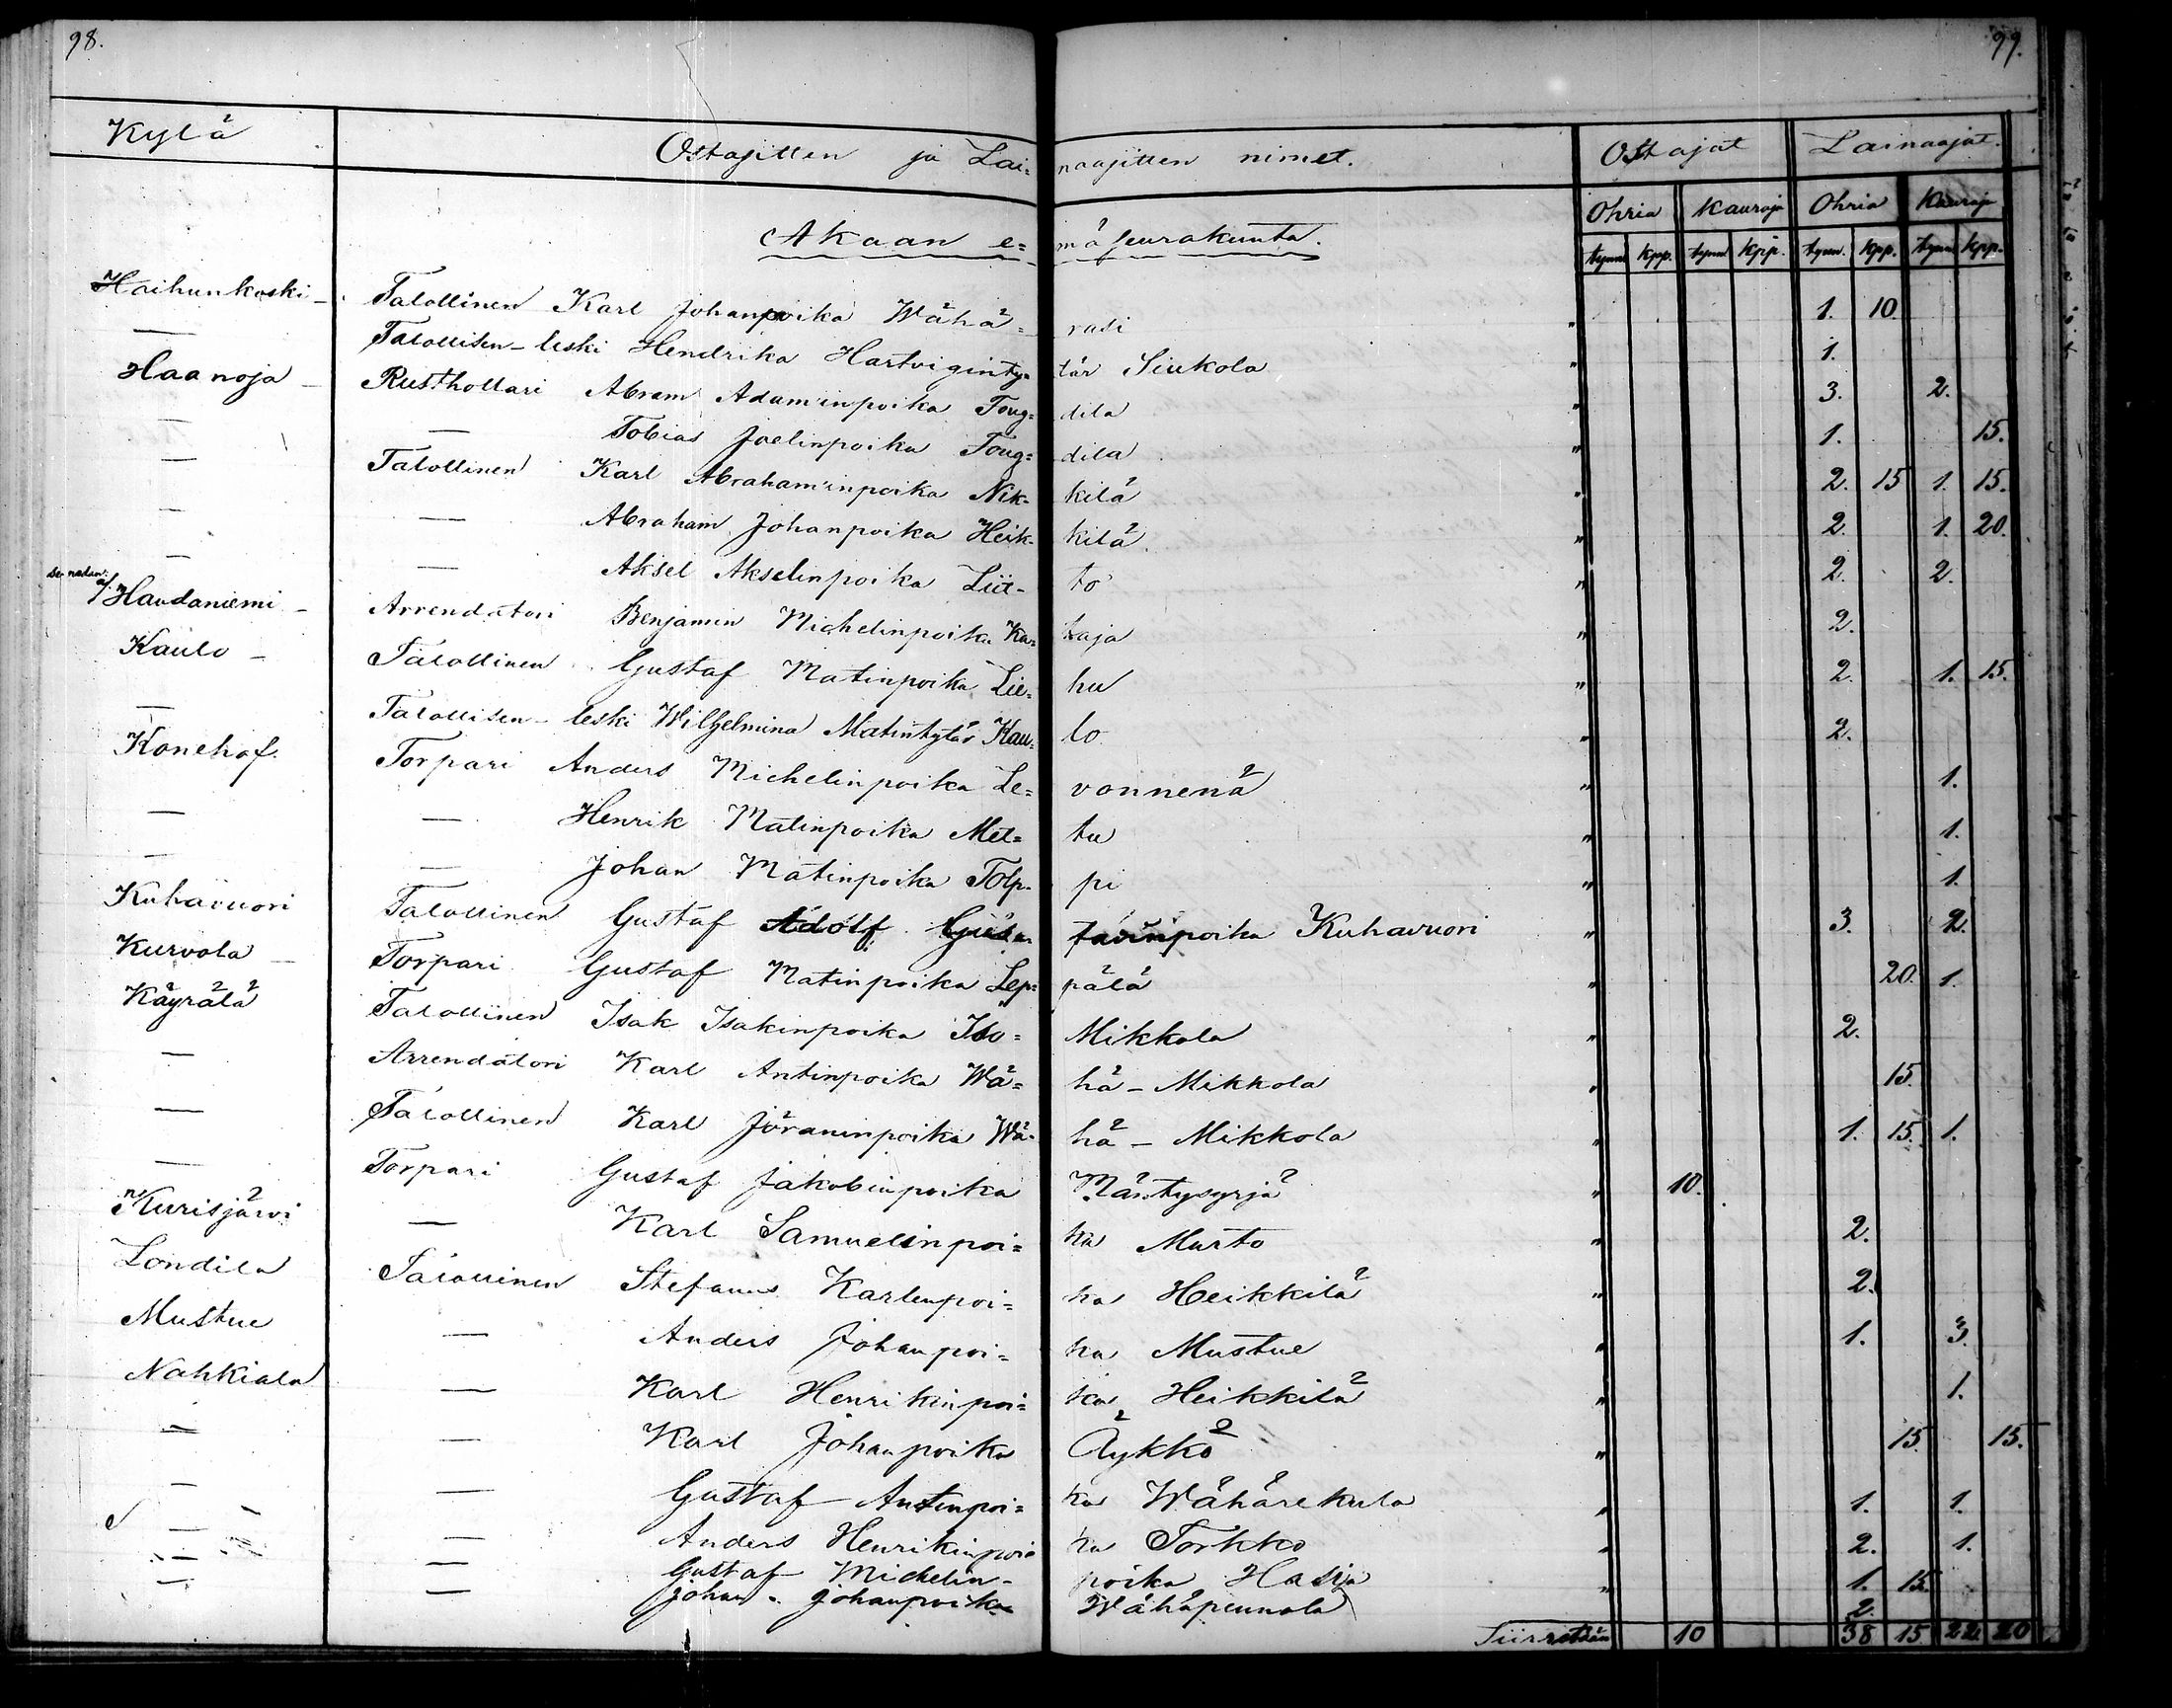 98. 99.
Kylä Ostajitten ja Lai= naajitten nimet. Ostajat Lainaajat.
Ohria Kauroja Ohria Kauroja
tynn. Kpp. tynn Kpp. tynn. Kpp. tynn Kpp.
Akaan e= mä seurakunta.
Haihunkoski – Talollinen Karl Johanpoika Wähä= rasi " 1. 10.
— Talollisen-leski Hendrika Hartvigintyt= tär Siukola " 1.
Haanoja – Rusthollari Abram Adaminpoika Toug= dila " 3. 2.
— — Tobias Joelinpoika Toug= dila " 1. 15.
— Talollinen Karl Abrahaminpoika Nik- kilä " 2. 15 1. 15.
— — Abraham Johanpoika Heik- kilä " 2. 1. 20.
— — Aksel Akselinpoika Liit- to " 2. 2.
Haudaniemi – Arrendatori Benjamin Michelinpoika Ka= kaja " 2.
Kaulo – Talollinen Gustaf Matinpoika Lie= hu " 2. 1. 15.
— Talollisen-leski Wilhelmina Matintytär Kau= lo " 2.
Konehof. Torpari Anders Michelinpoika Le= vonnenä " 1.
— — Henrik Matinpoika Met= tu " 1.
— — Johan Matinpoika Tolp- pi " 1.
Kuhavuori Talollinen Gustaf Adolf Gus= tavinpoika Kuhavuori " 3. 2.
Kurvola – Torpari Gustaf Matinpoika Lep= pälä " 20. 1.
Käyrälä Talollinen Isak Isakinpoika Iso= Mikkola " 2.
— Arrendatori Karl Antinpoika Wä= hä – Mikkola " 15.
— Talollinen Karl Jöraninpoika Wä= hä – Mikkola " 1. 15. 1.
— Torpari Gustaf Jakobinpoika Mäntysyrjä " 10.
Kurisjärvi — Karl Samuelinpoi= ka Murto " 2.
Londila Talollinen Stefanus Karlenpoi= ka Heikkilä " 2.
Mustue — Anders Johanpoi= ka Mustue " 1. 3.
Nahkiala — Karl Henrikinpoi= ka Heikkilä " 1.
— — Karl Johanpoika Äykkö " 15. 15.
— — Gustaf Antinpoi= ka Wähärekula " 1. 1.
— — Anders Henrikinpoi= ka Torkko " 2. 1.
— — Gustaf Michelin- poika Hasija " 1. 15.
— — Johan Johanpoika Wähäpennala 2.
Siirretään 10 38 15 22 20